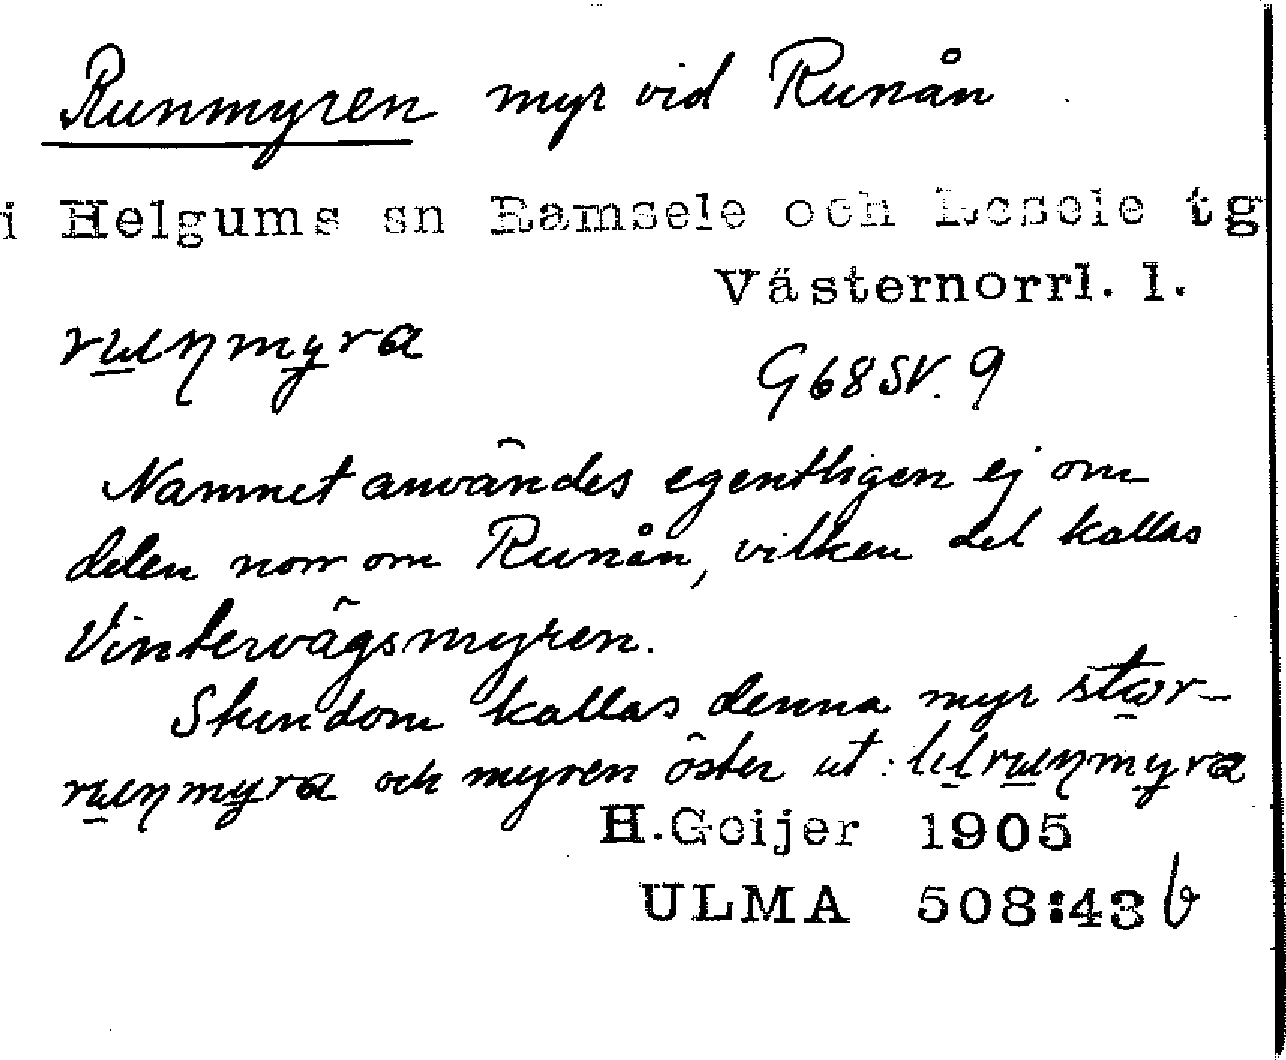 Runmyren myr vid Runån
i Helgums sn Ramsele och Resele tg
Västernorrl. l.
ruŋmyra
G 68 SV. 9
Namnet användes egentligen ej om
delen norr om Runån, vilken del kallas
Vintervägsmyren.
Stundom kallas denna myr stor-
ruŋmyra och myren öster ut: lilruŋmyra
H.Geijer 1905
ULMA 508:43 b